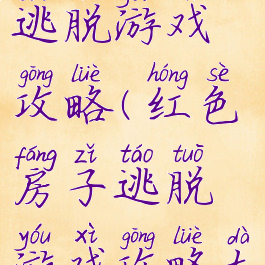 逃脱游戏
gōng lüè hóng sè
攻略(红色
fáng zǐ táo tuō
房子逃脱
yóu xì gōng lüè dà
游戏攻略大